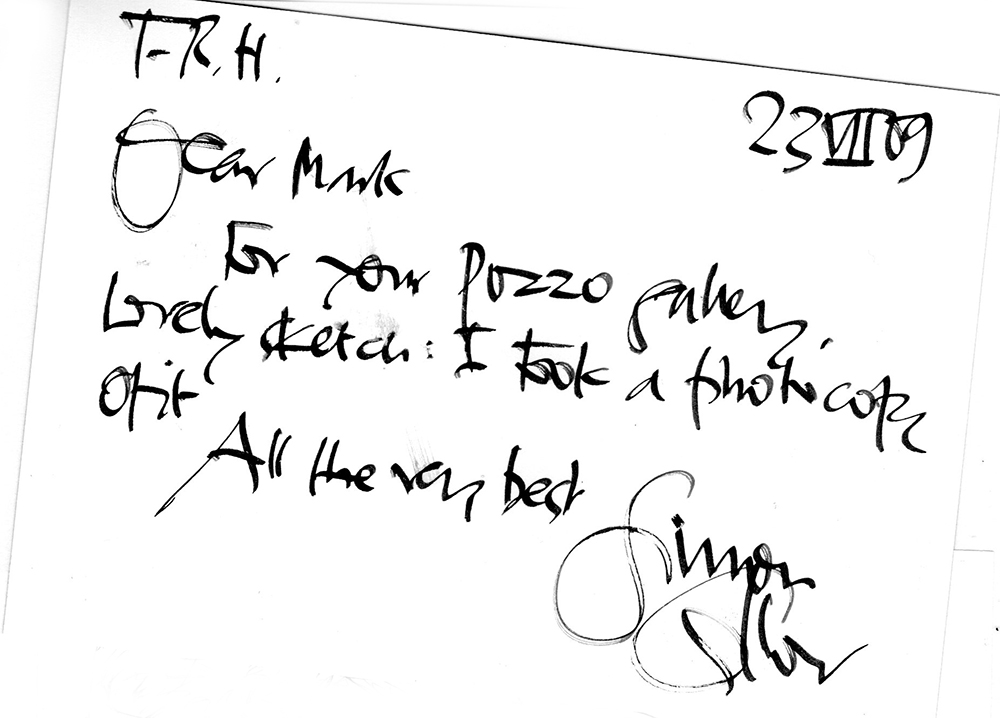 T.R.H.
23 VII 09
Dear Mark
For your Pozzo gallery,
lovely sketch: I took a photocopy
of it
All the very best
Simon